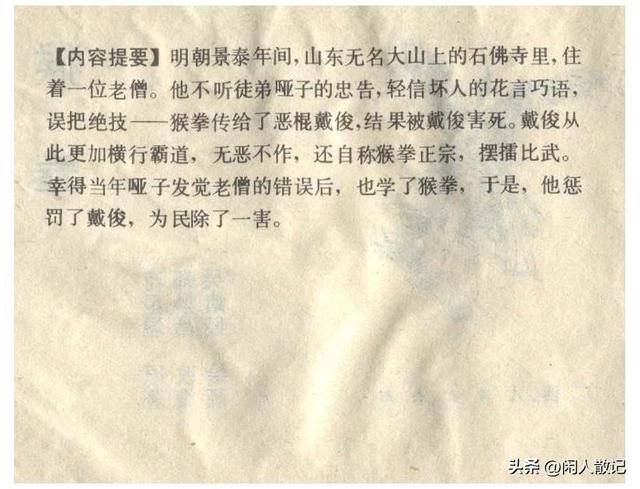 【内容提要】明朝景泰年间，山东无名大山上的石佛寺里，住
着一位老僧。他不听徒弟哑子的忠告，轻信坏人的花言巧语，
误把绝技——猴拳传给了恶棍戴俊，结果被戴俊害死。戴俊从
此更加横行霸道，无恶不作，还自称猴拳正宗，摆擂比武。
幸得当年哑子发觉老僧的错误后，也学了猴拳，于是，他惩
罚了戴俊，为民除了一害。
头条 @闲人散记